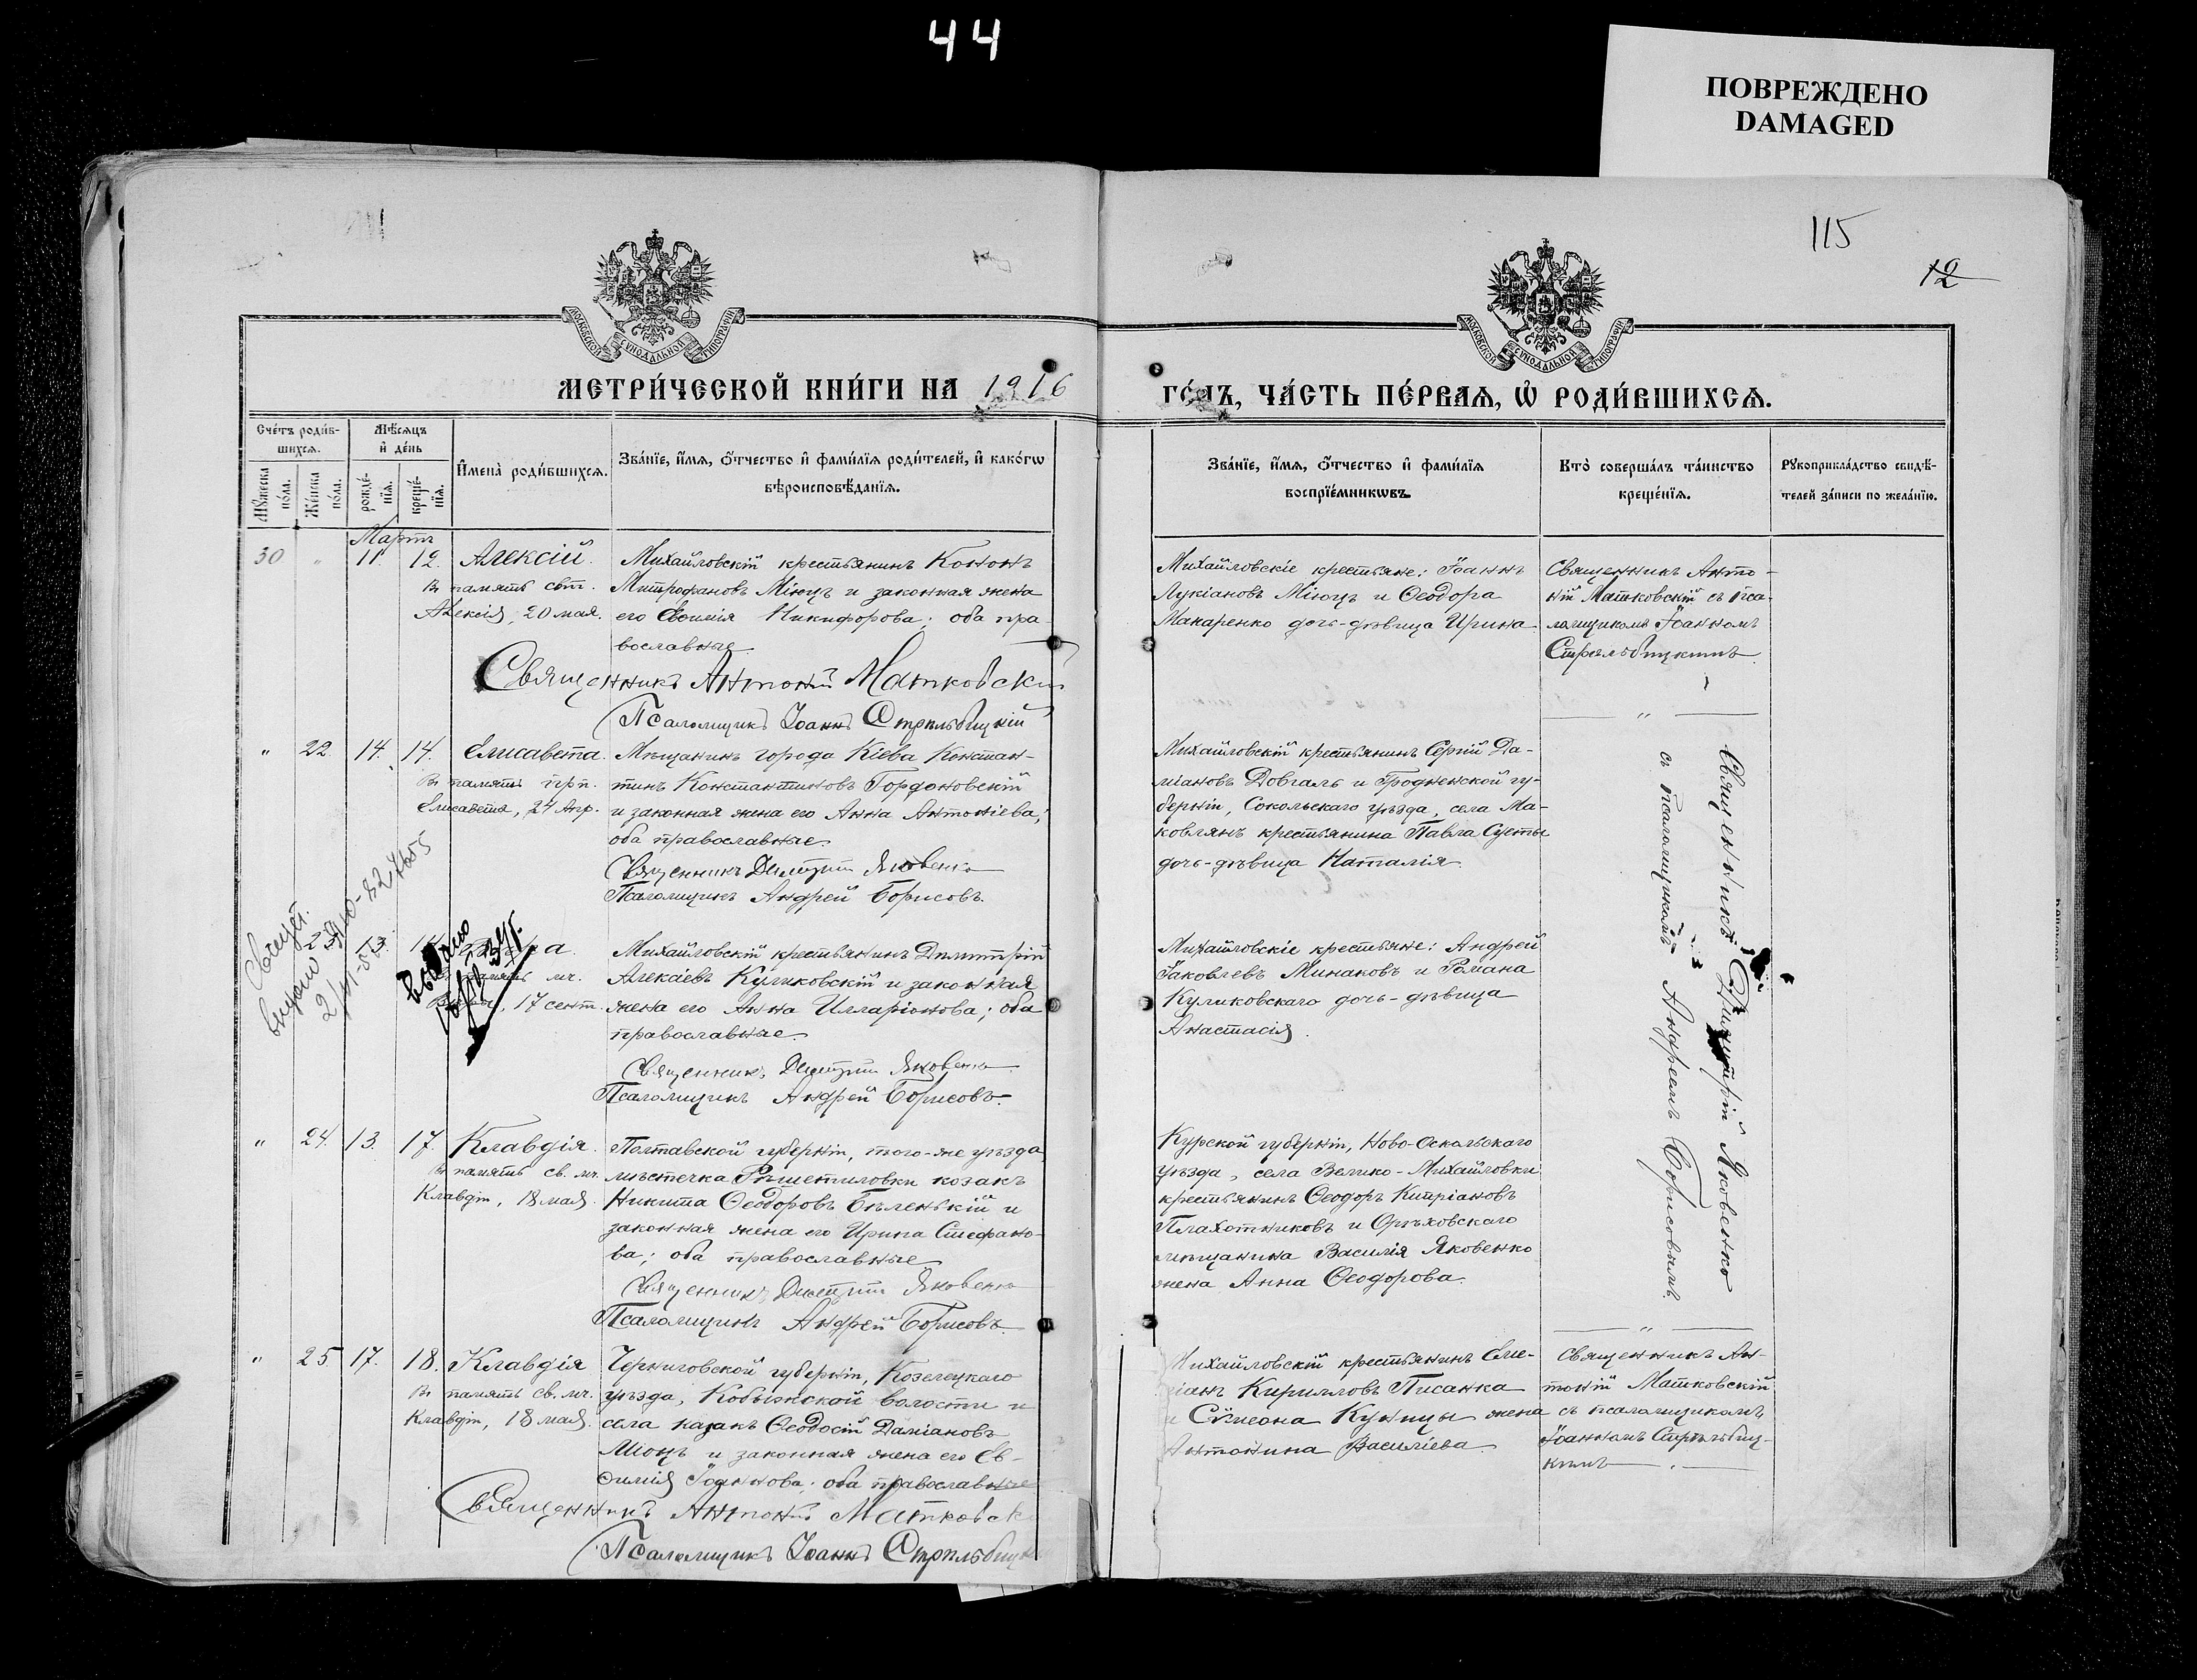 44
ПОВРЕЖДЕНО
DAMAGED
115
12
МОСКОВСКОЙ СѴНОДАЛЬНОЙ ТИПОГРАФІИ
МОСКОВСКОЙ СѴНОДАЛЬНОЙ ТИПОГРАФІИ
МЕТРИ́ЧЕСКОЙ КНИ́ГИ НА 1916
ГО́ДЪ, ЧА́СТЬ ПЕ́РВАѦ, Ѡ҆ РОДИ́ВШИХСѦ.
Сче́тъ роди́в-
шихсѧ.
Мꙋ́жеска
по́ла.
Же́нска
по́ла.
Мѣ́сѧцъ
и҆ де́нь
рожде́-
нїѧ.
креще́-
нїѧ.
И҆мена̀ роди́вшихсѧ.
Зва́нїе, и҆́мѧ, ѻ҆́тчество и҆ фами́лїѧ роди́телей, и҆ како́гѡ
вѣроисповѣ́данїѧ.
Зва́нїе, и҆́мѧ, ѻ҆́тчество и҆ фами́лїѧ
воспрїе́мникѡвъ.
Кто̀ соверша́лъ та́инство
креще́нїѧ.
Рꙋкоприкла́дство свидѣ́-
телей за́писи по жела́нїю.
Мартъ
30 " 11. 12. Алексій.
Въ память свт.
Алексія, 20 мая.
Михайловскій крестьянинъ Кононъ
Митрофановъ Міюцъ и законная жена
его Евѳимія Никифорова; оба пра
вославные
Священникъ Антоній Матковскій
Псаломщикъ Іоаннъ Стрельбицкій
Михайловскіе крестьяне: Іоаннъ
Лукіановъ Міюцъ и Ѳеодора
Макаренко дочь-дѣвица Ирина.
Священникъ Анто-
ній Матковскій съ пса-
ломщикомъ Іоанномъ
Стрельбицкимъ.
" 22 14. 14. Елисавета.
Въ память прп.
Елисаветы, 24 Апр.
Мѣщанинъ города Кіева Констан-
тинъ Константиновъ Гордоновскій
и законная жена его Анна Антоніева;
оба православные
Священникъ Димитрій Яковенко
Псаломщикъ Андрей Борисовъ.
Михайловскій крестьянинъ Сергій Да-
міановъ Довгаль и Гродненской гу-
берніи, Сокольскаго уѣзда, села Ма-
ковлянъ крестьянина Павла Суеты
дочь-дѣвица Наталія.
Священникъ Димитрій Яковенко
съ псаломщикомъ Андреемъ Борисовымъ.
17 сент.
Михайловскій крестьянинъ Димитрій
Алексіевъ Куликовскій и законная
жена его Анна Илларіонова; оба
православные
Священникъ Димитрій Яковенко
Псаломщикъ Андрей Борисовъ.
Михайловскіе крестьяне: Андрей
Іаковлевъ Минаковъ и Романа
Куликовскаго дочь-дѣвица
Анастасія.
" 24. 13. 17. Клавдія.
Въ память св. мч.
Клавдіи, 18 мая.
Полтавской губерніи, того-же уѣзда,
мѣстечка Рѣшетиловки козакъ
Никита Ѳеодоровъ Бѣленькій и
законная жена его Ирина Стефано-
ва; оба православные
Священникъ Димитрій Яковенко
Псаломщикъ Андрей Борисовъ.
Курской губерніи, Ново-Оскольскаго
уѣзда, села Велико-Михайловки
крестьянинъ Ѳеодоръ Кипріановъ
Плахотниковъ и Орѣховскаго
мѣщанина Василія Яковенко
жена Анна Ѳеодорова.
" 25 17. 18. Клавдія
Въ память св. мч.
Клавдіи, 18 мая.
Черниговской губерніи, Козелецкаго
уѣзда, Кобыжской волости и
села казакъ Ѳеодосій Даміановъ
Міюцъ и законная жена его Ев-
ѳимія Іоаннова; оба православные
Священникъ Антоній Матковскій
Псаломщикъ Іоаннъ Стрельбицкій
Михайловскій крестьянинъ Еме-
ліанъ Кирилловъ Писанка
и Симеона Куницы жена
Антонина Василіева.
Священникъ Ан-
тоній Матковскій
съ псаломщикомъ
Іоанномъ Стрельбиц-
кимъ